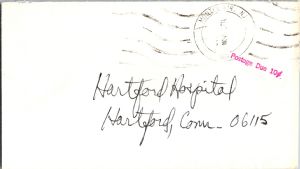 Postage Due 10¢
Hartford Hospital
Hartford, Conn - 06115